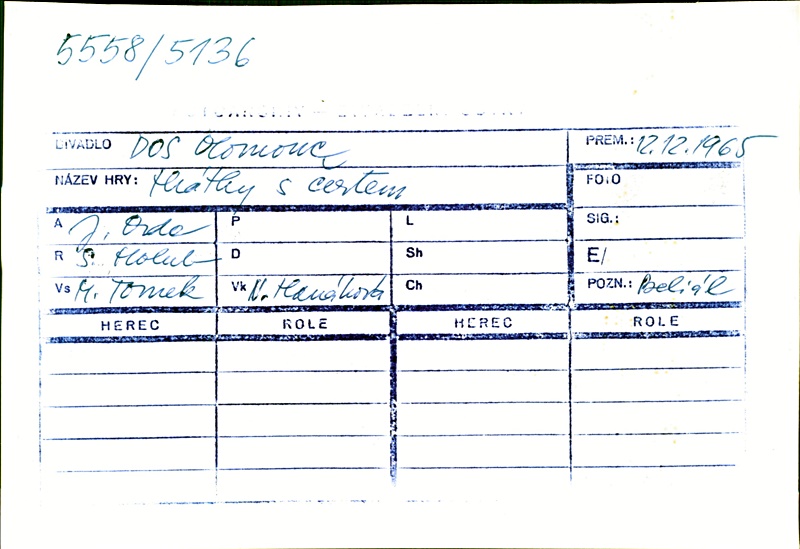 5558/5136
DIVADLO DOS Olomouc PREM.: 12.12.1965
NÁZEV HRY: Hrátky s čertem FOTO
A J. Drda P L SIG.:
R S. Holub D Sh E/
Vs M. Tomek Vk N. Hanáková Ch POZN.: Beliál
HEREC ROLE HEREC ROLE